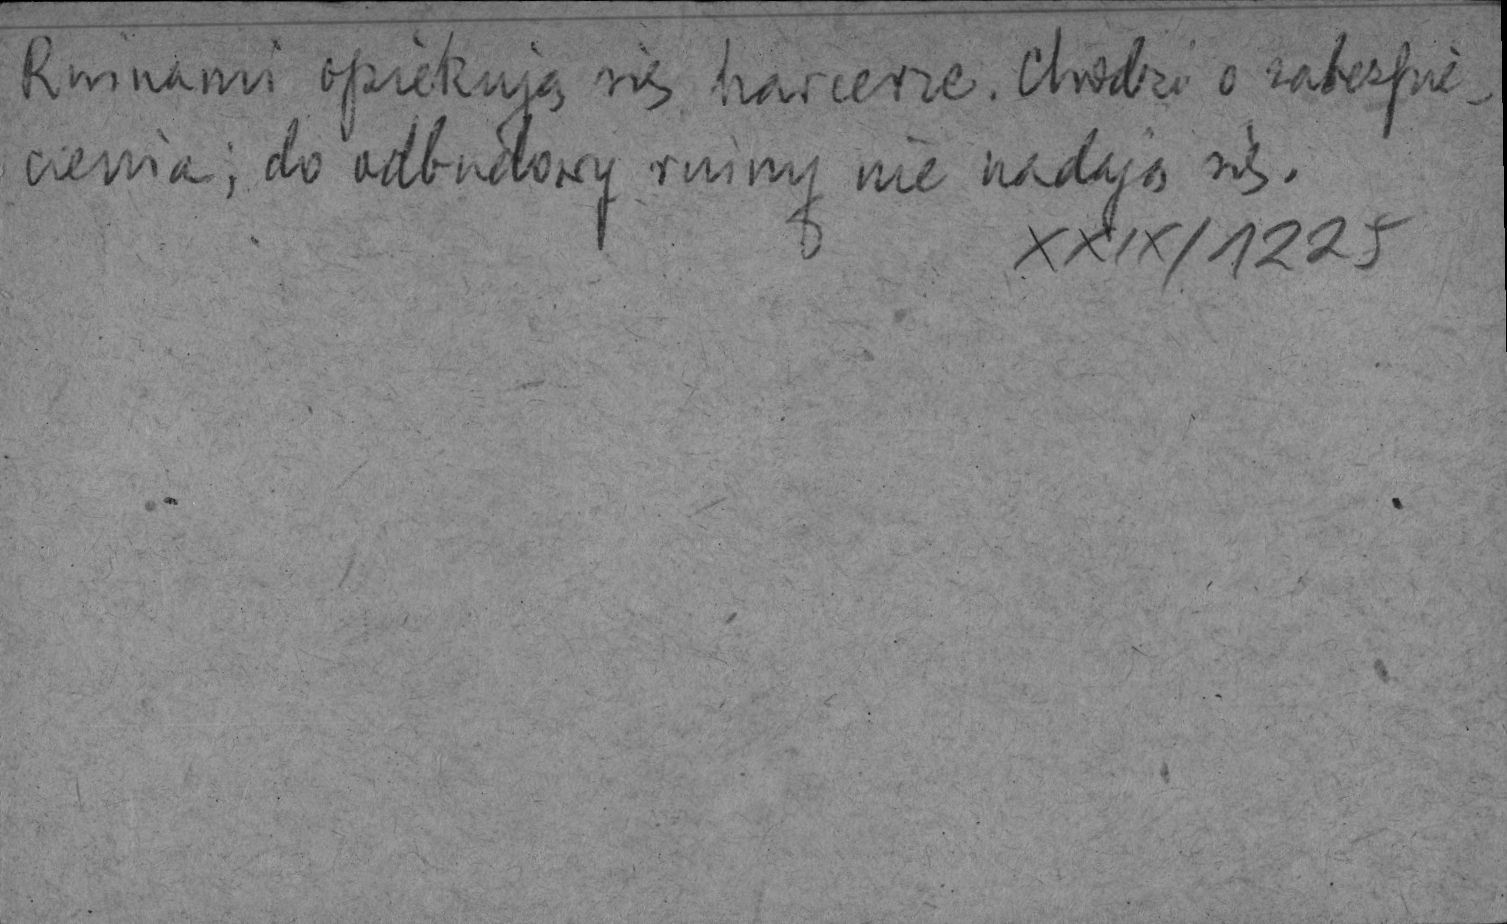 Ruinami opiekują się harcerze. Chodzi o zabezpie-
czenia; do odbudowy ruiny nie nadają się.
XXIX/1225